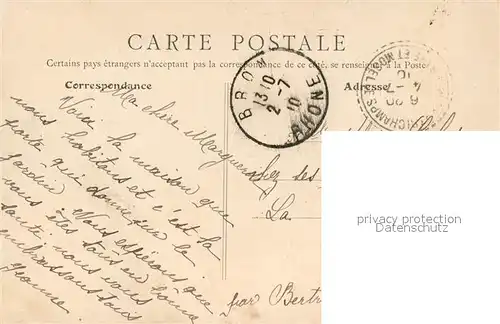 CARTE POSTALE
Certains pays étrangers n'acceptant pas la correspondance de ce côté, se renseigner à la Poste
Correspondance
Adresse
BRON
13 10
2-7
10
RHONE
ET MOSELLE
6 20
4-7
10
Ma chère Marguerite
Voici la maison que
nous habitons et c'est la
porte qui donne sur le
jardin. Nous espérons que
vous êtes tous en bonne
santé, nous vous
embrassons tous
Jeanne
chez ses
La
par Bertr
privacy protection
watermark